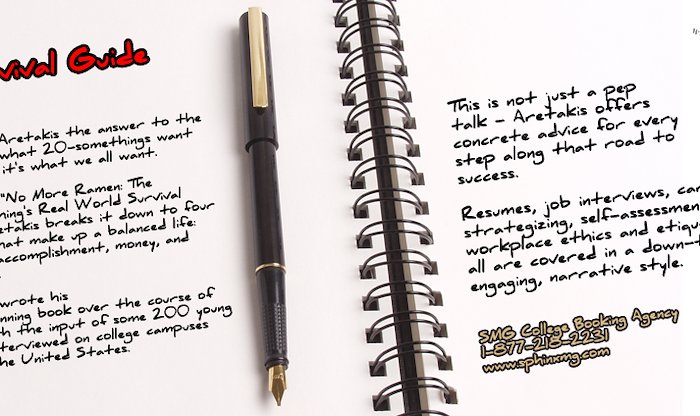 vival Guide
Aretakis the answer to the
what 20-somethings want
it's what we all want.
"No More Ramen: The
ning's Real World Survival
etakis breaks it down to four
hat make up a balanced life:
accomplishment, money, and
wrote his
nning book over the course of
th the input of some 200 young
terviewed on college campuses
he United States.
This is not just a pep
talk - Aretakis offers
concrete advice for every
step along that road to
success.
Resumes, job interviews, car
strategizing, self-assessmen
workplace ethics and etiqu
all are covered in a down-t
engaging, narrative style.
SMG College Booking Agency
1-877-218-2231
www.sphinxmg.com